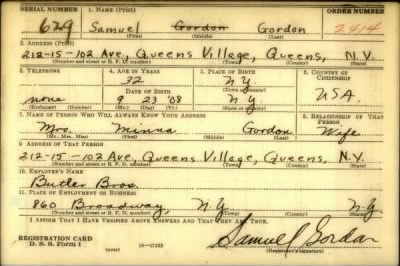 SERIAL NUMBER 1. NAME (Print) ORDER NUMBER
629 Samuel Gordon Gordon 2414
(First) (Middle) (Last)
2. ADDRESS (Print)
212-15-102 Ave, Queens Village, Queens, N.Y.
(Number and street or R. F. D. number) (Town) (County) (State)
3. TELEPHONE 4. AGE IN YEARS 5. PLACE OF BIRTH 6. COUNTRY OF CITIZENSHIP
32 N.Y.
DATE OF BIRTH (Town or county)
none 23 '08 N.Y. USA.
(Exchange) (Number) (Mo.) (Day) (Yr.) (State or country)
7. NAME OF PERSON WHO WILL ALWAYS KNOW YOUR ADDRESS 8. RELATIONSHIP OF THAT PERSON
Mrs. Minna Gordon Wife
(Mr., Mrs., Miss) (First) (Middle) (Last)
9. ADDRESS OF THAT PERSON
212-15-102 Ave, Queens Village, Queens, N.Y.
(Number and street or R. F. D. number) (Town) (County) (State)
10. EMPLOYER'S NAME
Butler Bros.
11. PLACE OF EMPLOYMENT OR BUSINESS
860 Broadway, N.Y. N.Y.
(Number and street or R. F. D. number) (Town) (County) (State)
I AFFIRM THAT I HAVE VERIFIED ABOVE ANSWERS AND THAT THEY ARE TRUE.
REGISTRATION CARD
D. S. S. FORM 1 Samuel Gordon
(Registrant's signature)